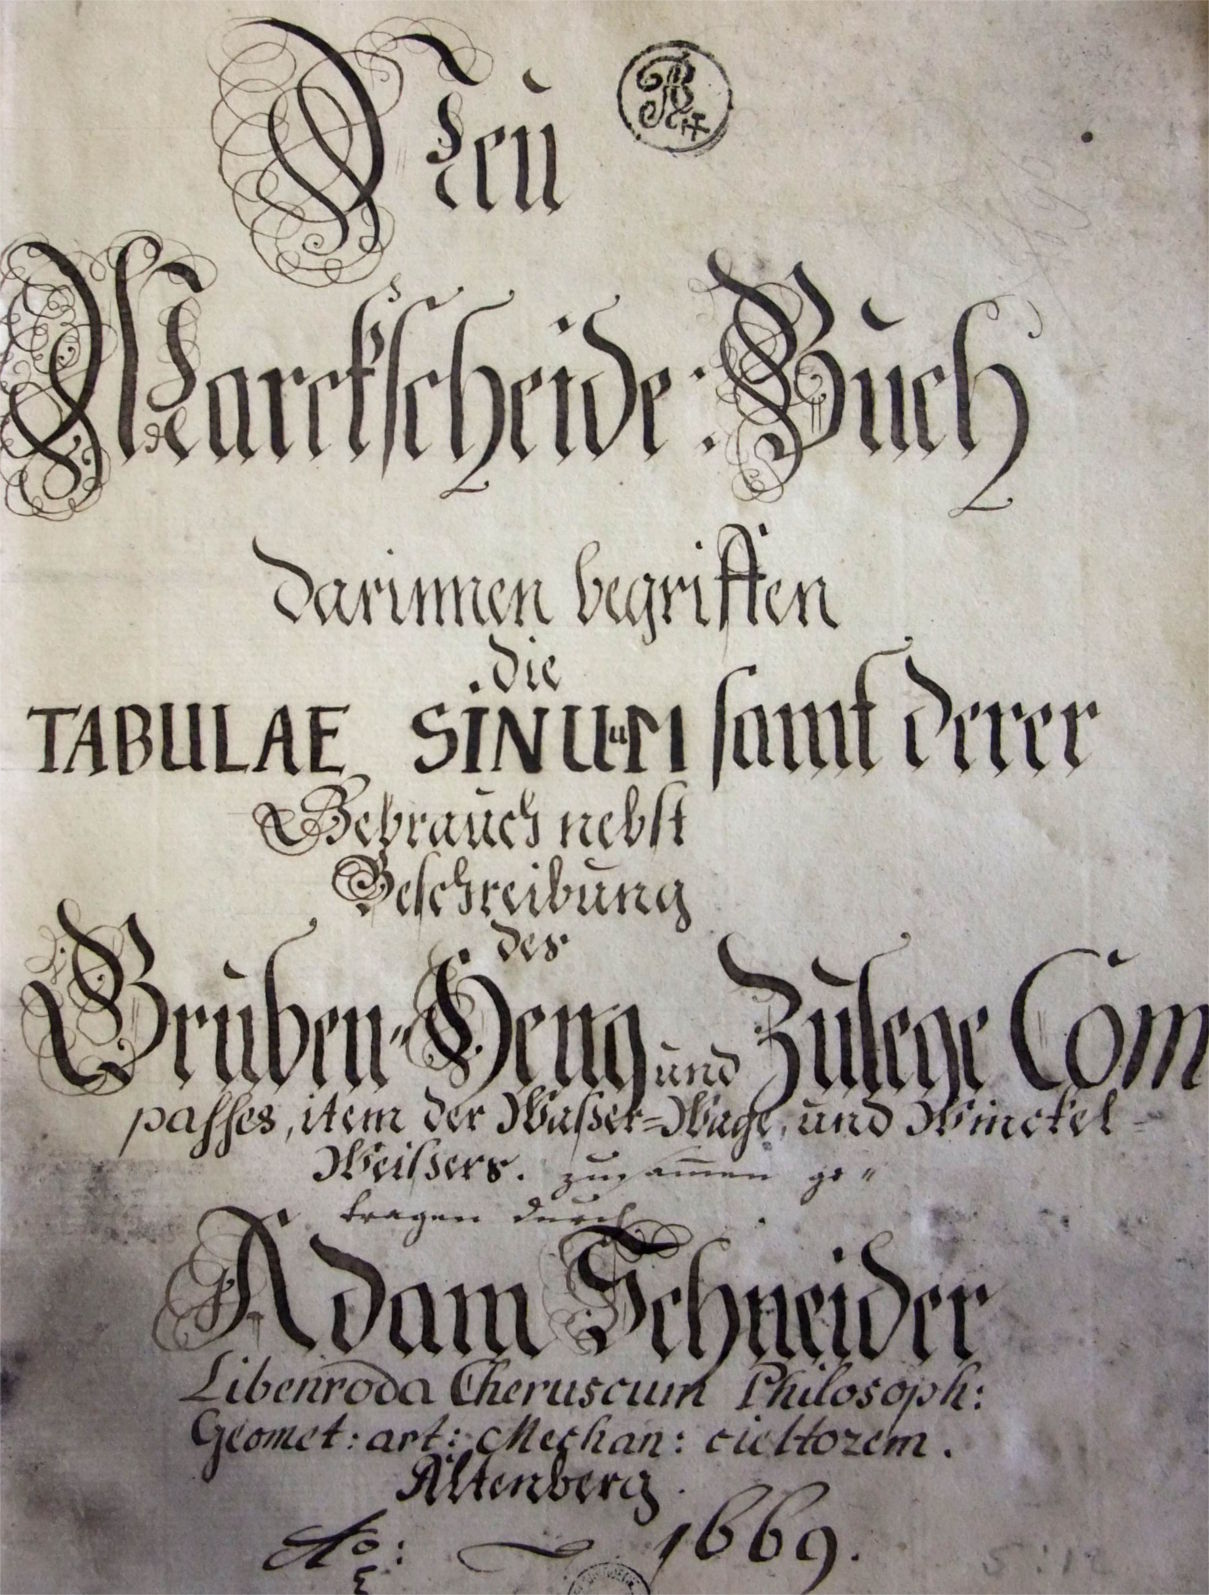 Neu
Marckscheide: Buch
darinnen begriffen
die
TABULAE SINUUM samt derer
Gebrauch nebst
Beschreibung
des
Gruben- Heng und Zulege Com
passes, item der Waßer=Wage, und Winckel=
Weißers. zusamen ge"
tragen durch
Adam Schneider
Libenroda Cheruscum Philosoph:
Geomet: art: Mechan:
Altenberg.
Ao: 1669.